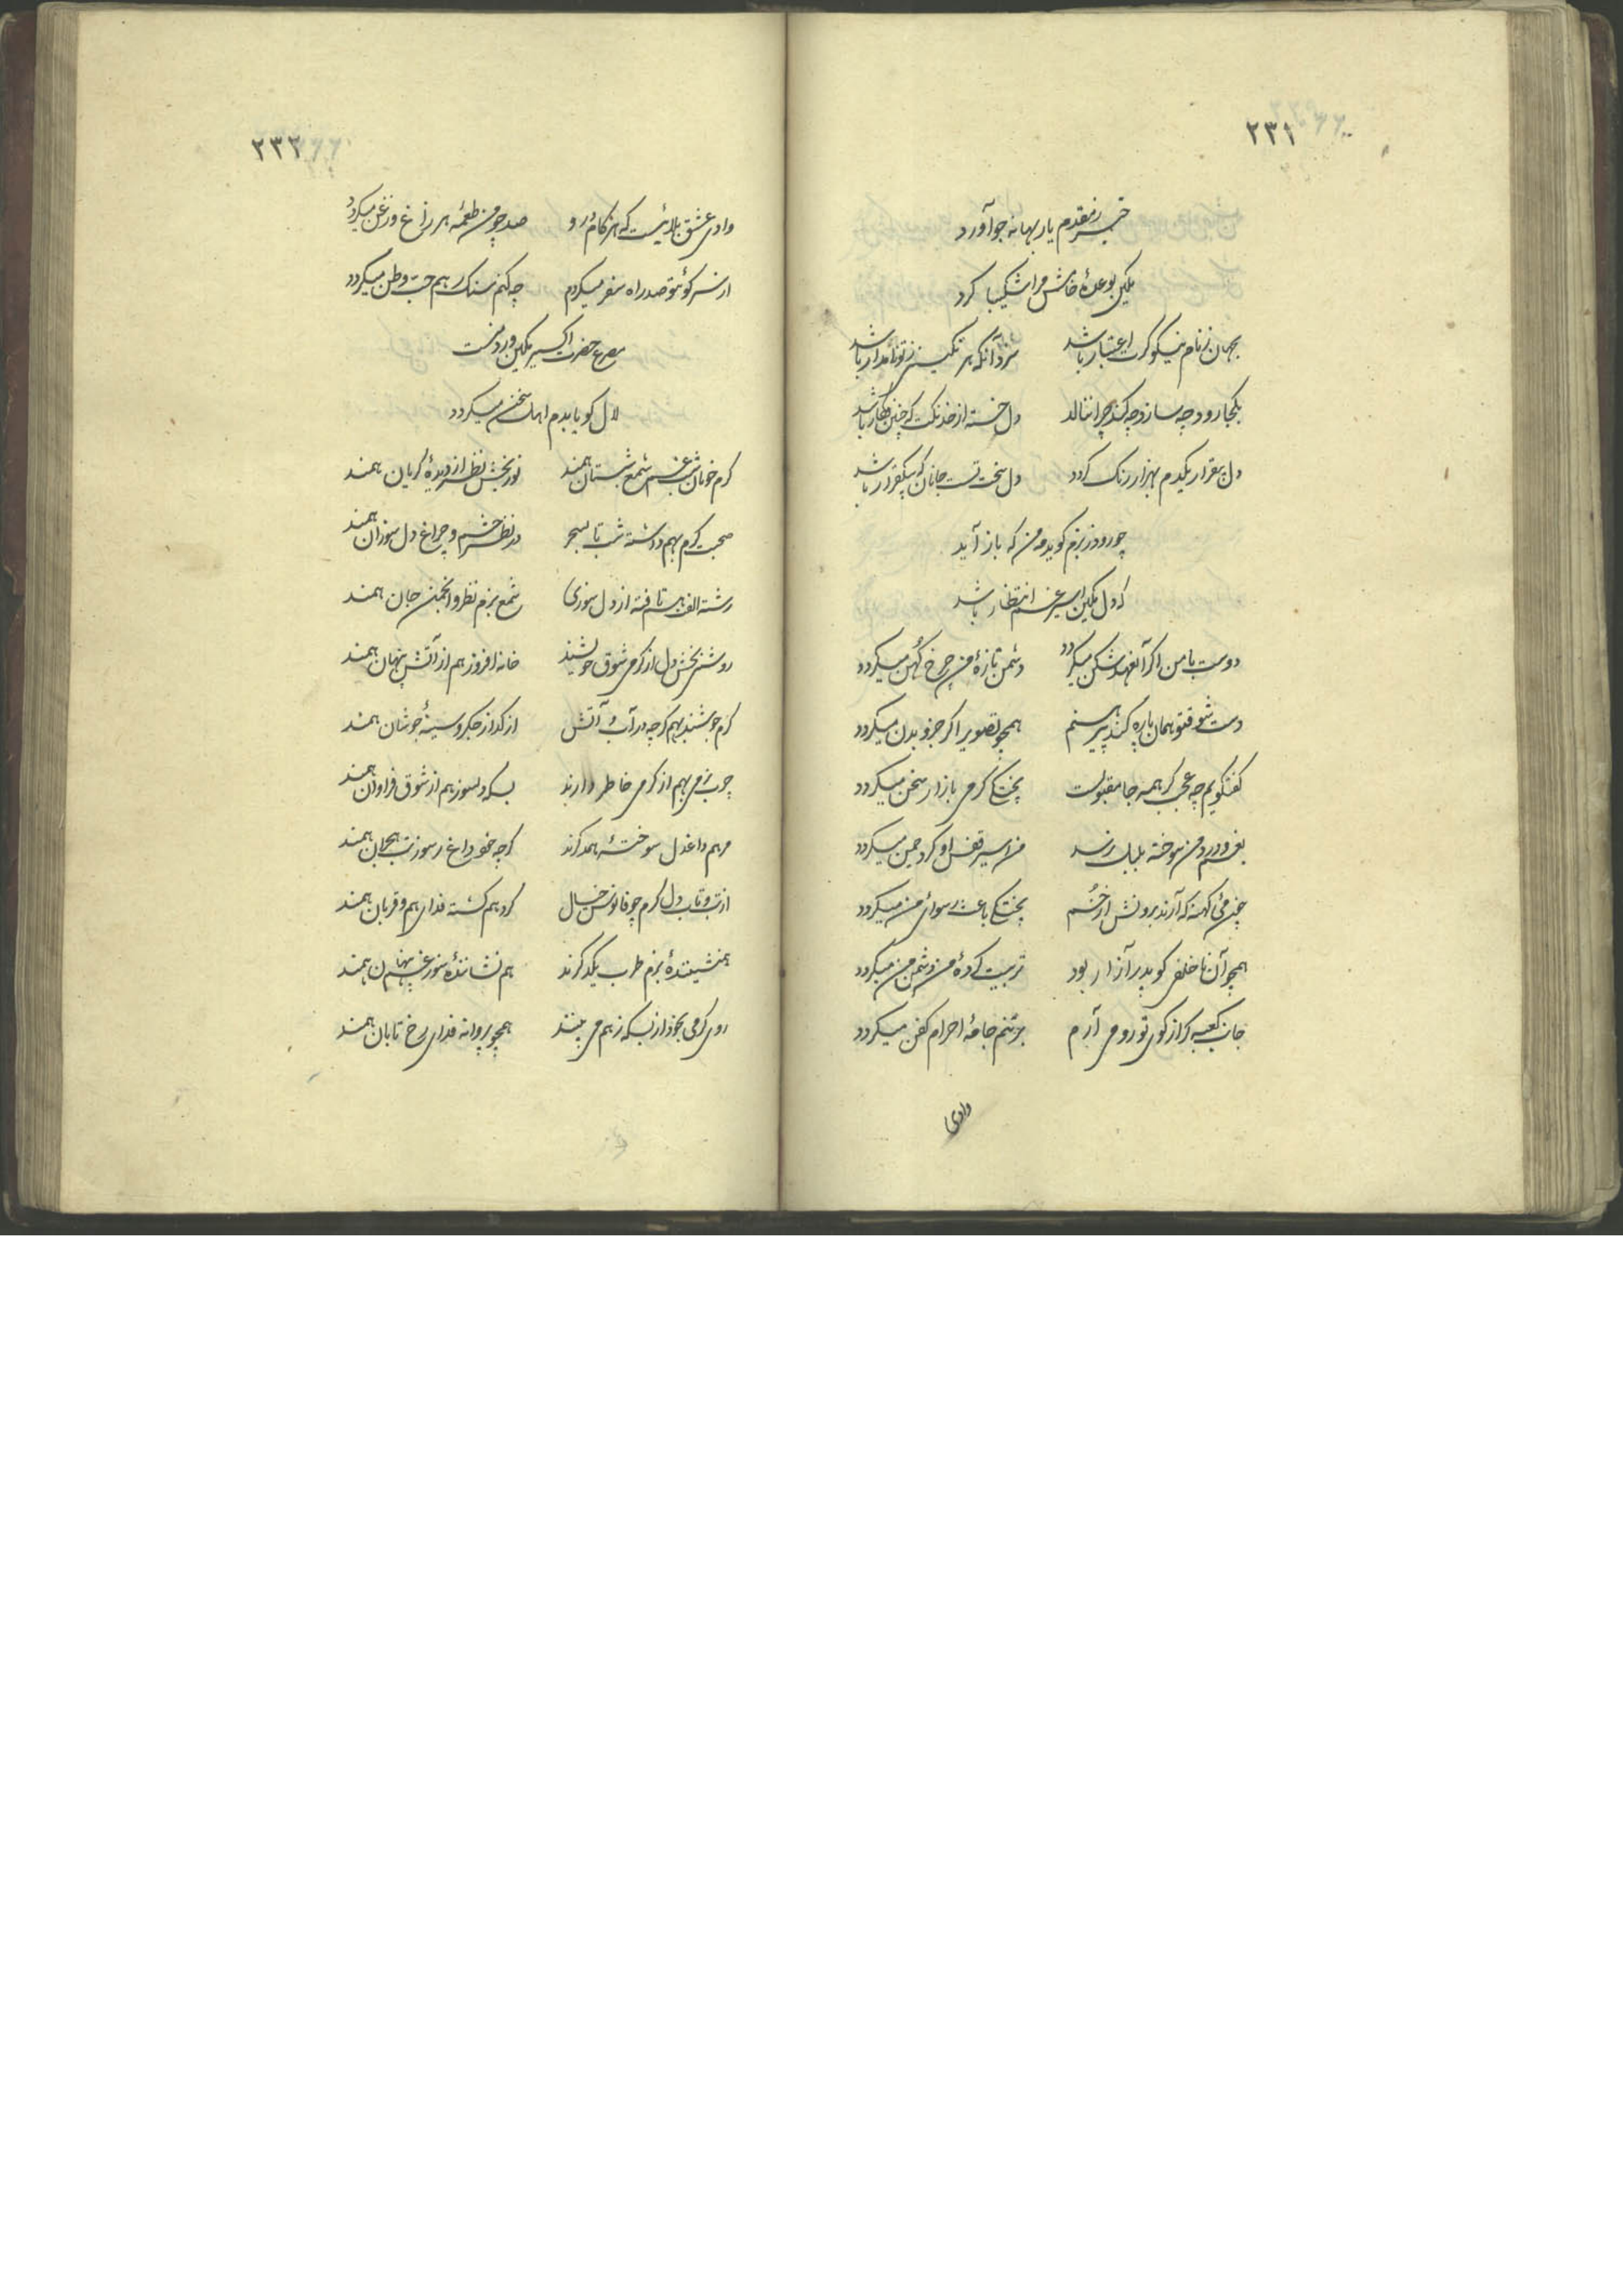 ۲۳۱
خبر ز مقدم یار بهانه جو آورد
بوعدهٔ خاش مرا شکیبا کرد
بجهان ز نام نیکو کرت اعتبار باشد سزد آنکه هر نگینی ز تو نامدار باشد
بکجا رود چه سازد چه کند چرا ننالد دل خسته از خدنگت که چنین فکار باشد
دل بیقرار یکدم بهزار رنک کردد دل سخت تست جانان که بیکقرار باشد
چو رود ز بزم کوید مه من که باز آید
که دل اسیر غم انتظار باشد
دوست با من اکر آنعهد شکن میکردد دشمن تازهٔ من چرخ کهن میکردد
دست شوق تو همان پاره کند پیرهنم همچو تصویر اکر جزو بدن میکردد
کفتکویم چه عجب کر همه جا مقبولست پختکی کرمی بازار سخن میکردد
بغم و درد من سوخته بلبل نرسد من اسیر قفس او کرد چمن میکردد
چون می کهنه که آرند برونش از خم پختکی باعث رسوائی من میکردد
همچو آن ناخلفی کو پدر آزار بود تربیت کردهٔ من دشمن من میکردد
جانب کعبه کر از کوی تو رو می آرم برتنم جامهٔ احرام کفن میکردد
وادی
۲۳۲
وادی عشق بلائیست که هر کام درو صد چو من طعمهٔ هر زاغ و زغن میکردد
از سر کوئتو صد راه سفر میکردم چه کنم سنک رهم حب وطن میکردد
مصرع حضرت اکسیر ورد منست
لال کویا بدم اهل سخن میکردد
کرم خونان شب غم شمع شبستان همند نور بخش نظر از دیدهٔ کریان همند
صحبت کرم بهم داشته شب تا بسحر در نظر چشم و چراغ دل سوزان همند
رشته الفت هم تافته از دل سوزی شمع بزم نظر و انجمن جان همند
روشنی بخش دل از کرمی شوق خویشند خانه افروز هم از آتش پنهان همند
کرم جوشند بهم کرچه در آب و آتش از کداز جکر و سینهٔ جوشان همند
چرب نرمی بهم از کرمی خاطر دارند بسکه دلسوز هم از شوق فراوان همند
مرهم داغ دل سوختهٔ همدکرند کرچه خود داغ ز سوز تب هجران همند
از تب و تاب دل کرم چو فانوس خیال کرد هم کشته فدای هم و قربان همند
همنشینندهٔ بزم طرب یکدکرند هم نشانندهٔ سوز غم پنهان همند
روی کرمی بخود از بسکه ز هم می بینند همچو پروانه فدای رخ تابان همند